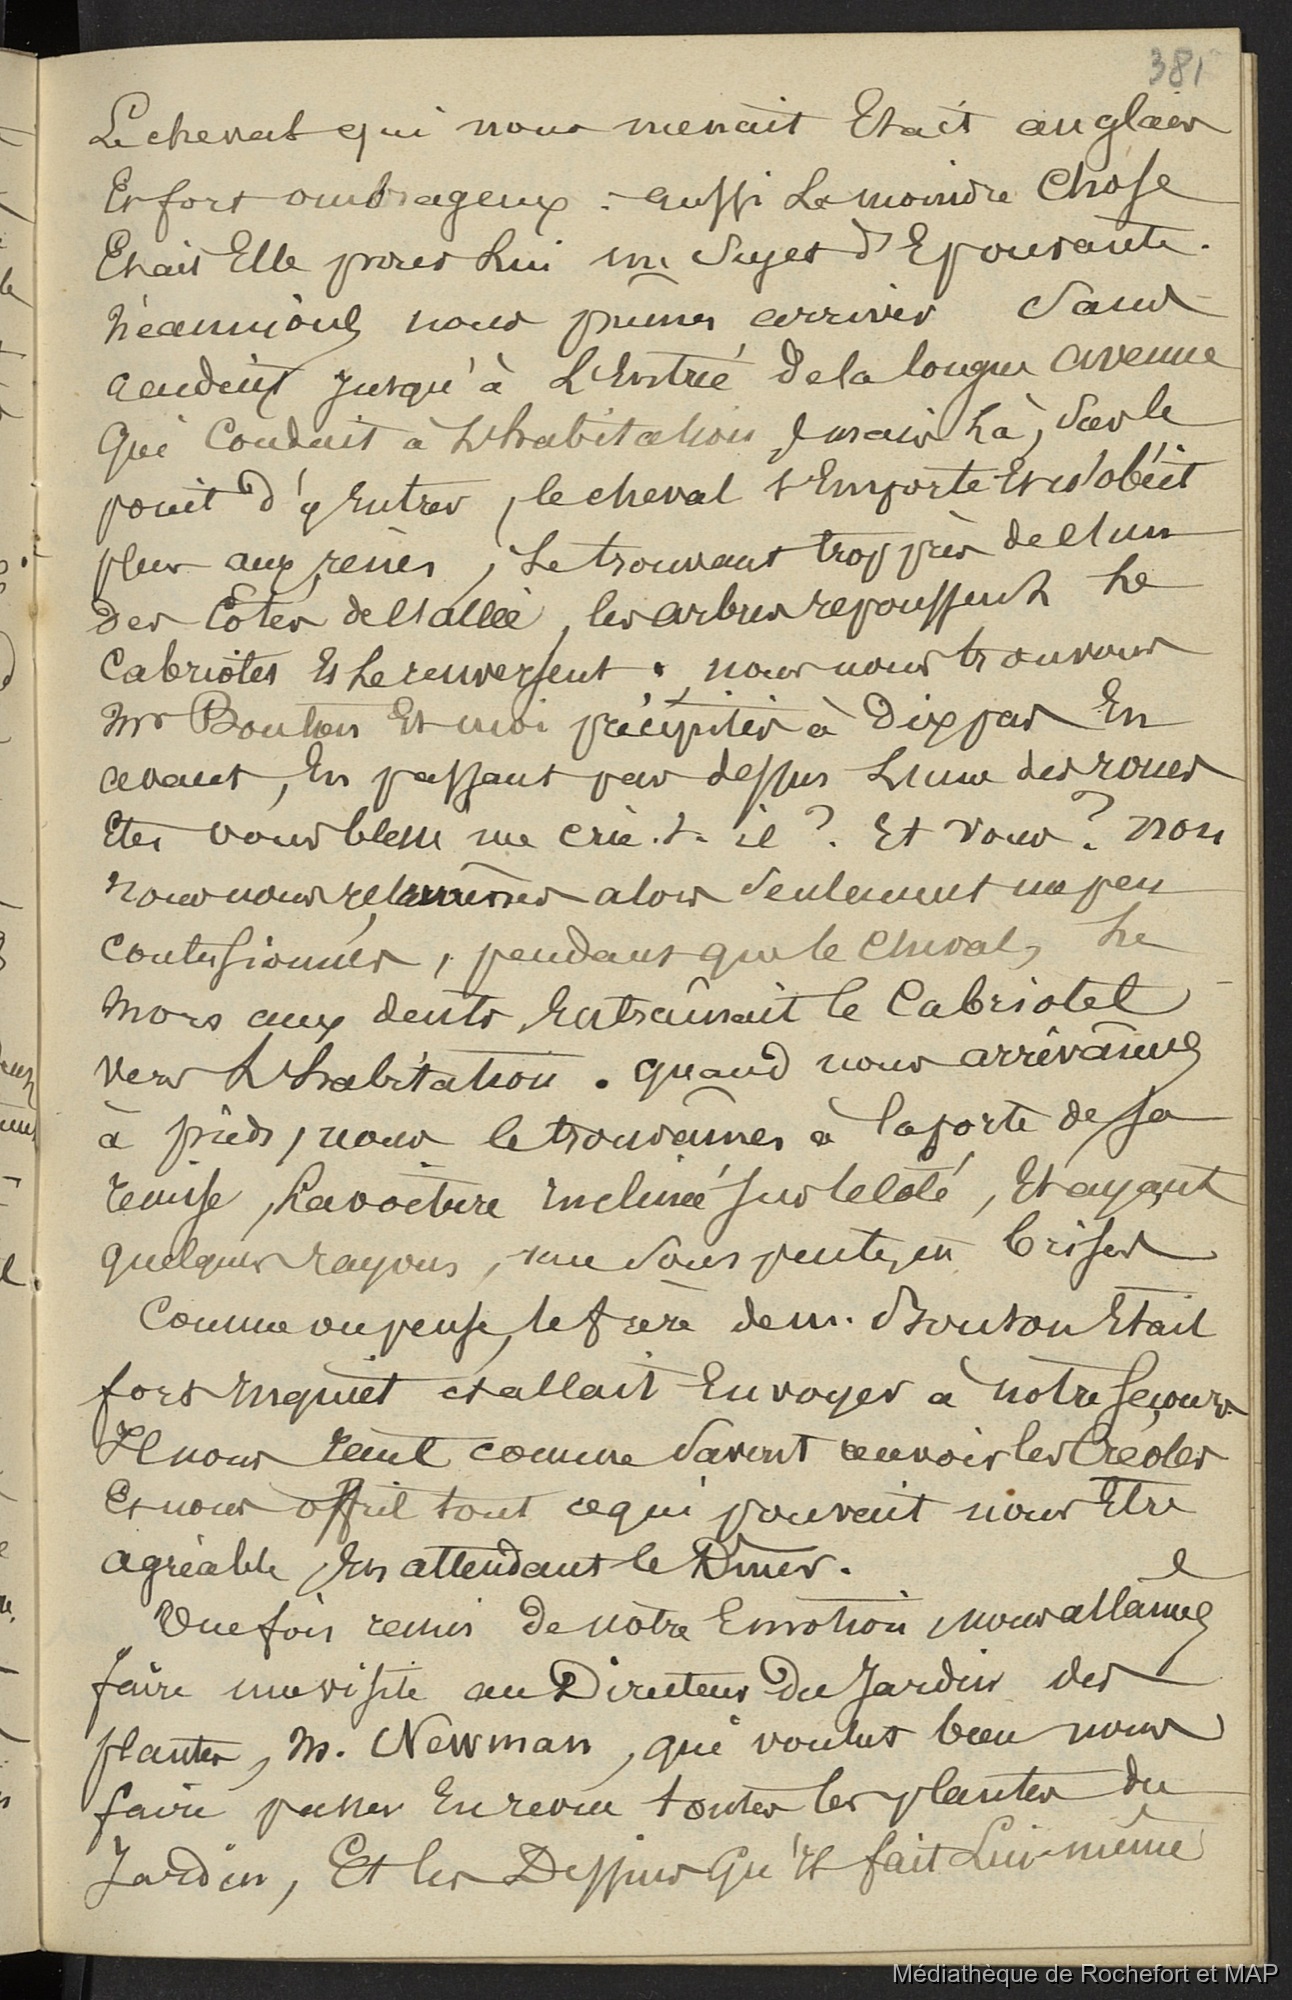 381
Le cheval qui nous menait Etait anglais
Et fort ombrageux : aussi Le moindre Chose
Etait Elle pour Lui un Sujet d'Epouvante.
Néanmoins nous pûmes arriver Sans
accident jusqu'à L'Entrée de la longue avenue
Qui Conduit à L'habitation, mais Là, Sur le
point d'y Entrer, le cheval s'Emporte Et n'obéit
plus aux rênes, Se trouvant trop près de l'un
Des Côtés de l'allée, les arbres repoussent Le
Cabriolet Et Le renversent. nous nous trouvons
Mr Bouton Et moi précipités à Dix pas En
avant, En passant par dessus L'une des roues
Etes vous blessé me crie-t-il ? Et vous ? non
Nous nous relevâmes alors Seulement un peu
Contusionnés, pendant que le Cheval, Le
Mors aux dents Entraînait le Cabriolet
vers L'habitation. Quand nous arrivâmes
à pieds, nous le trouvâmes à la porte de Sa
remise, La voiture inclinée Sur le Côté, Et ayant
quelques rayons, une Sous pente, en brisés
Comme on pense, le frère de M. Bouton Etait
fort inquiet et allait Envoyer à notre Secours.
Il nous reçut comme Savent recevoir les Créoles
Et nous offrit tout ce qui pouvait nous Etre
agréable, En attendant le Dîner.
Une fois remis de notre Emotion, nous allâmes
faire une visite au Directeur Du Jardin des
plantes, M. Newman, qui voulut bien nous
faire passer En revue toutes les plantes du
Jardin, Et les Dessins Qu'Il fait Lui-même
Médiathèque de Rochefort et MAP